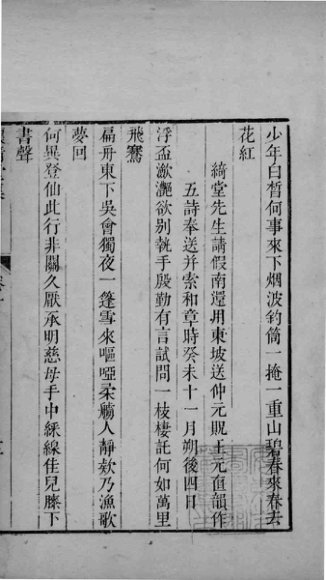 少年白皙何事來下烟波釣筒一掩一重山碧春來春去
花紅
綺堂先生請假南還用東坡送仲元貺王元直韻作
五詩奉送并索和章時癸未十一月朔後四日
浮盃瀲灔欲別執手殷勤有言試問一枝棲託何如萬里
飛騫
扁舟東下吳會獨夜一篷雪來嘔啞柔艣人靜欸乃漁歌
夢回
何異登仙此行非關久厭承明慈母手中綵線佳兒膝下
書聲